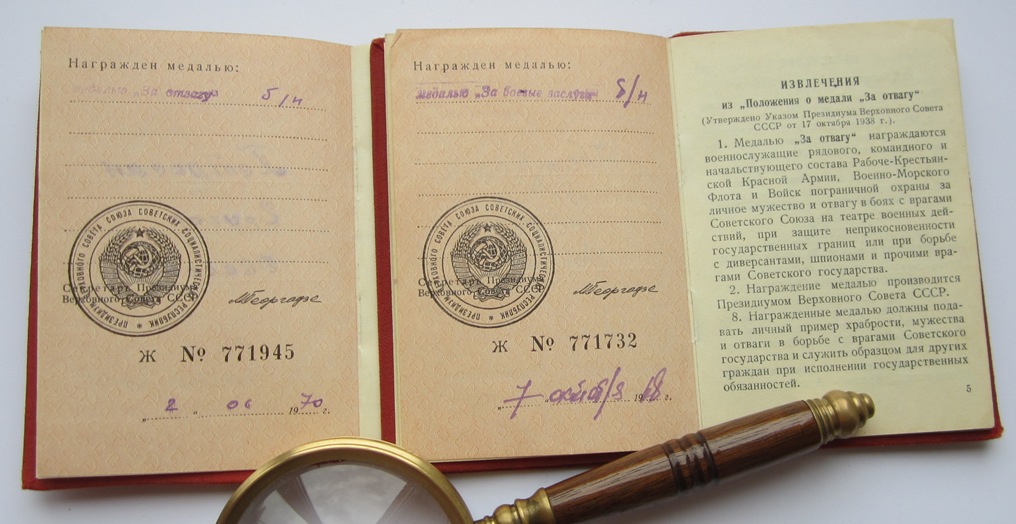 Награжден медалью:
медалью „За отвагу“ б/н
Секретарь Президиума
Верховного Совета СССР
МГеоргадзе
Ж № 771945
„ 2 “ 06 1970 г.
Награжден медалью:
медалью „За боевые заслуги“ б/н
Секретарь Президиума
Верховного Совета СССР
МГеоргадзе
Ж № 771732
„ 7 “ октября 1968 г.
ИЗВЛЕЧЕНИЯ
из „Положения о медали „За отвагу“
(Утверждено Указом Президиума Верховного Совета
СССР от 17 октября 1938 г.).
1. Медалью „За отвагу“ награждаются
военнослужащие рядового, командного и
начальствующего состава Рабоче-Крестьян-
ской Красной Армии, Военно-Морского
Флота и Войск пограничной охраны за
личное мужество и отвагу в боях с врагами
Советского Союза на театре военных дей-
ствий, при защите неприкосновенности
государственных границ или при борьбе
с диверсантами, шпионами и прочими вра-
гами Советского государства.
2. Награждение медалью производится
Президиумом Верховного Совета СССР.
8. Награжденные медалью должны пода-
вать личный пример храбрости, мужества
и отваги в борьбе с врагами Советского
государства и служить образцом для других
граждан при исполнении государственных
обязанностей.
5